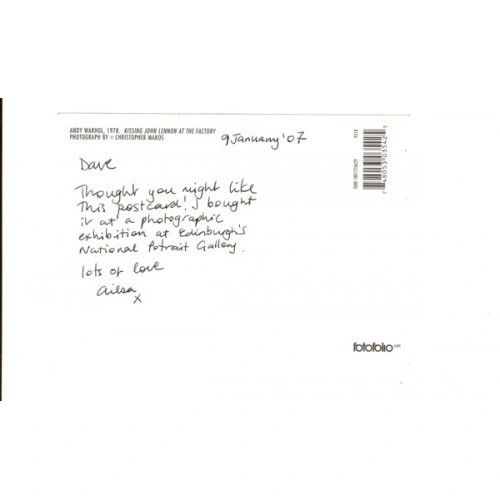 ANDY WARHOL, 1978. KISSING JOHN LENNON AT THE FACTORY
PHOTOGRAPH BY © CHRISTOPHER MAKOS
9 January '07
Dave
Thought you might like
this postcard! I bought
it at a photographic
exhibition at Edinburgh's
National Potrait Gallery.
lots of love
Ailsa
x
fotofolio